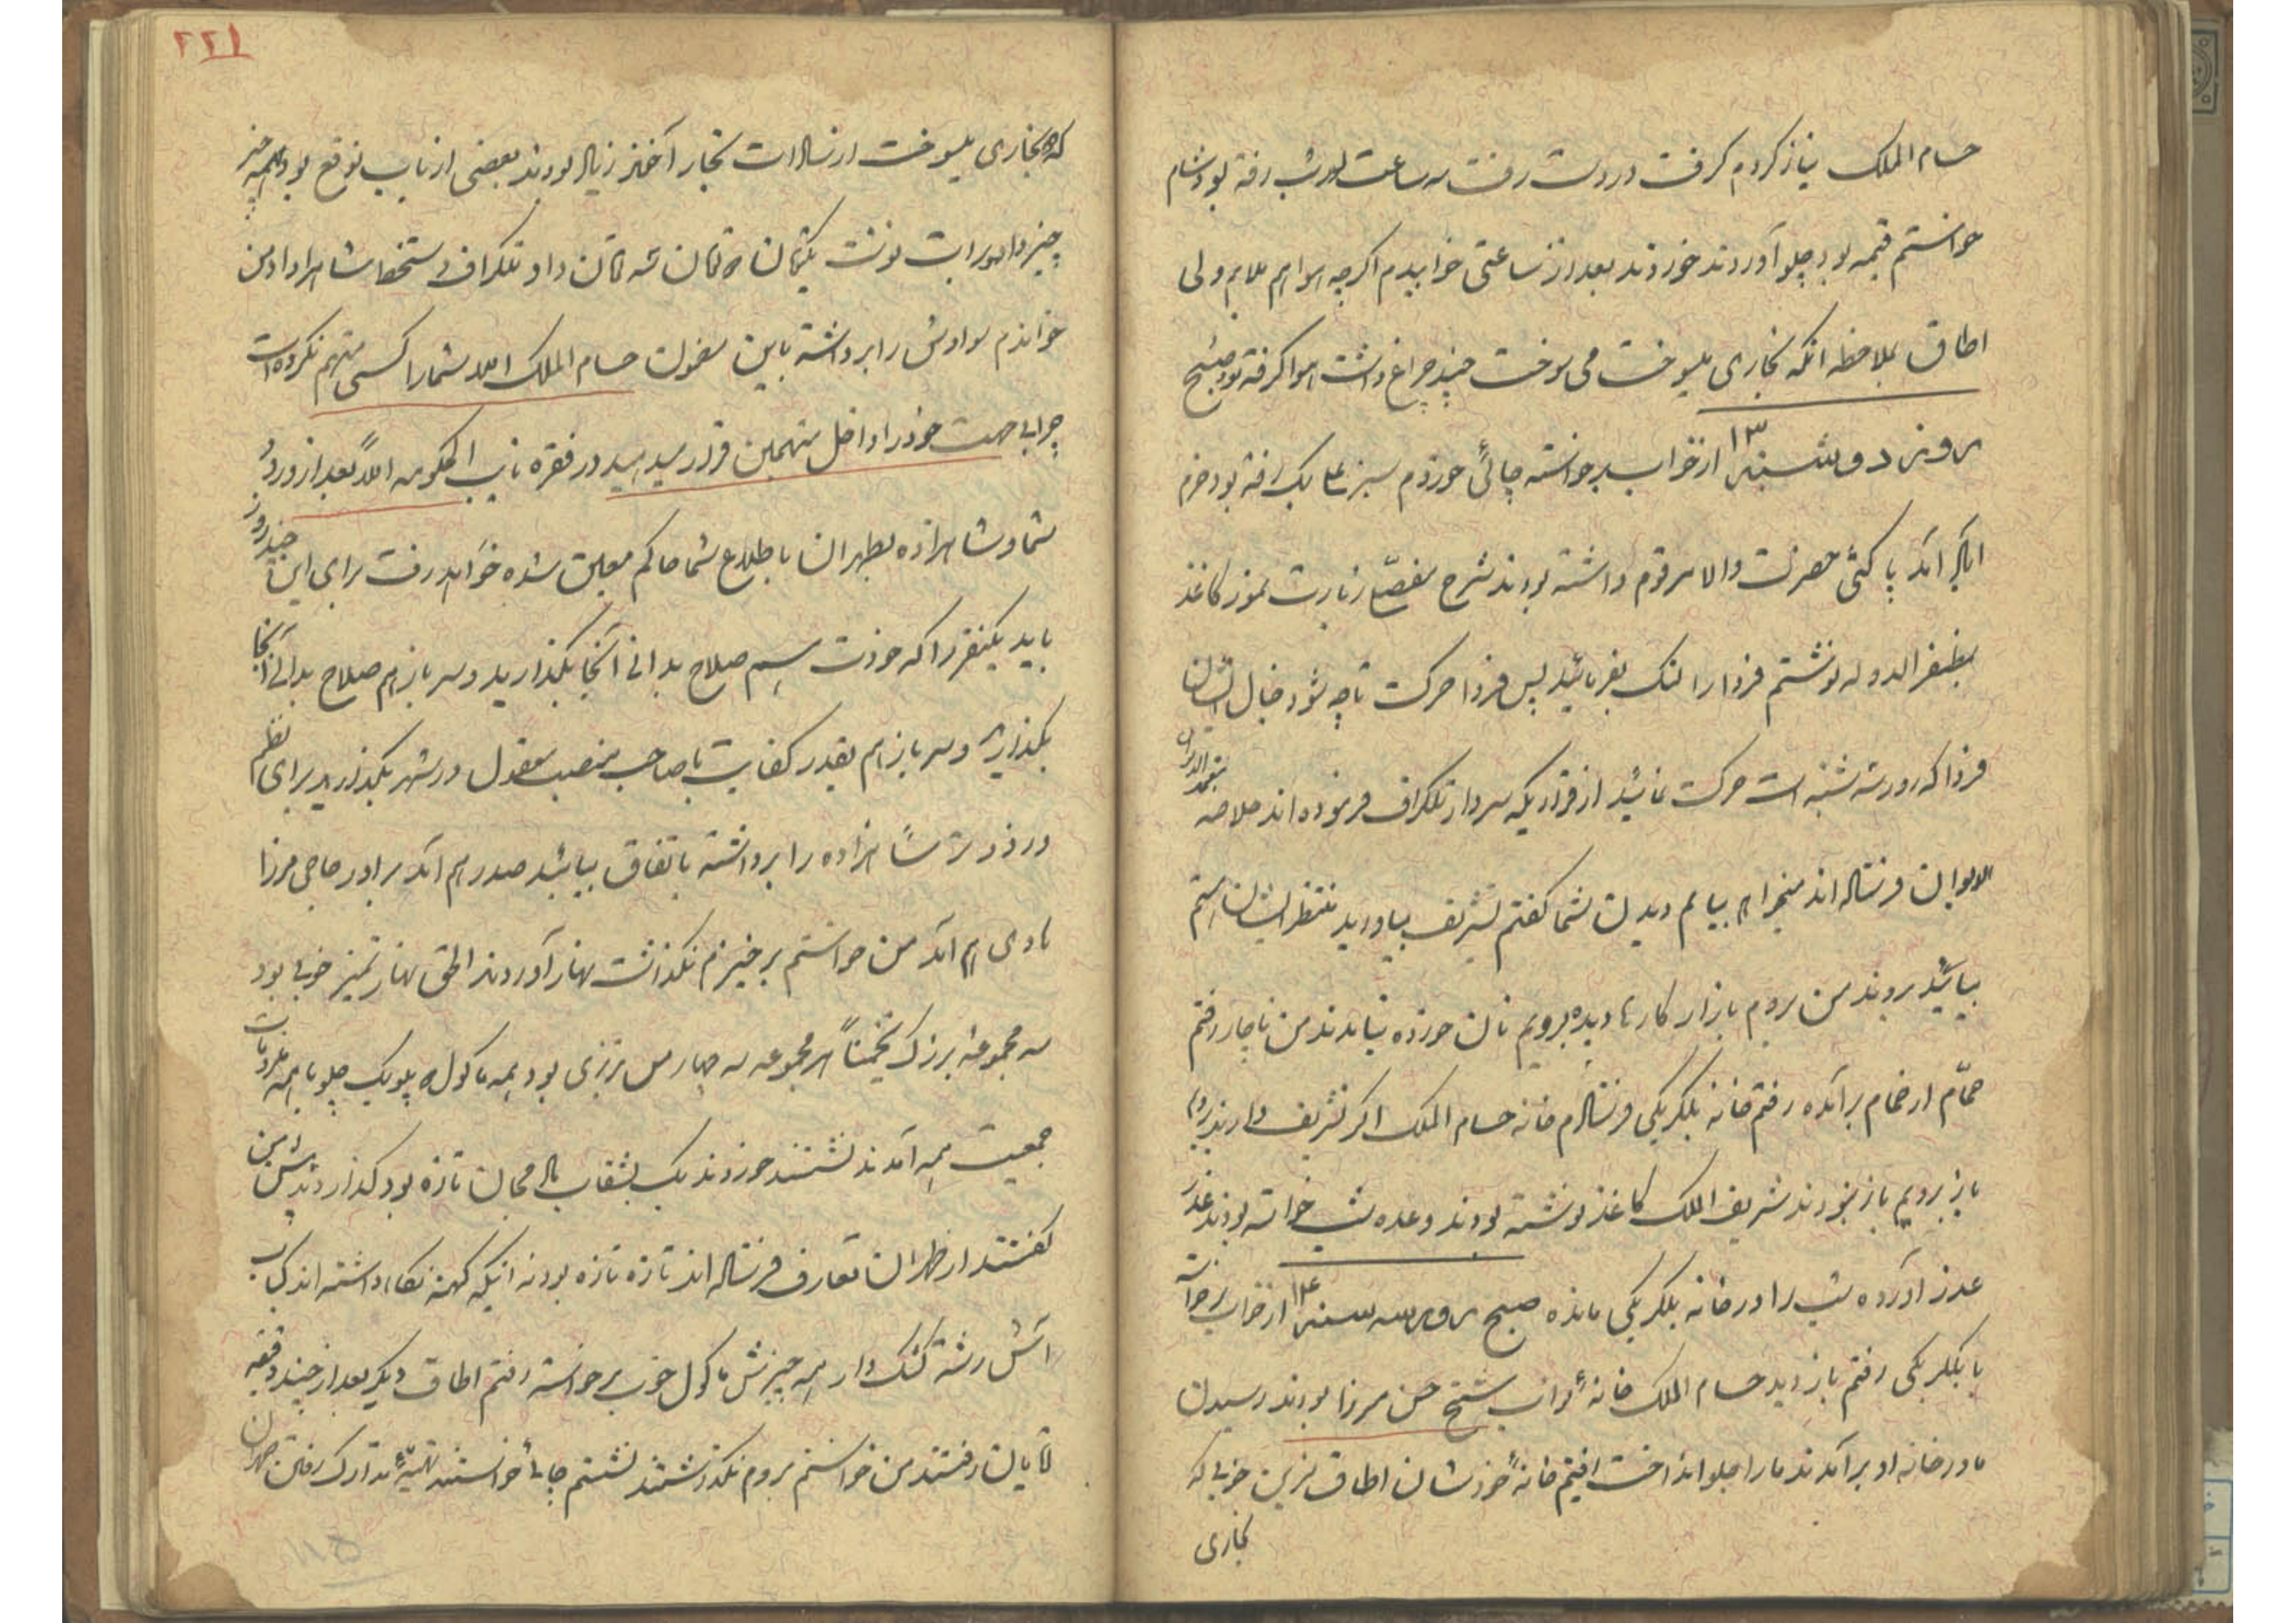 حسام الملک نیاز کردم گرفت درست رفت سه ساعت از شب رفته بود شام
خواستم قیمه بود چلو آوردند خوردند بعد از ساعتی خوابیدم اگرچه هوا هم ملایم ولی
اطاق بملاحظه آنکه بخاری میسوخت می سوخت چند چراغ داشت هوا گرفته بود صبح
روز دوشنبه ۱۳ از خواب برخواسته چائی خوردم سبزعلی بیک رفته بود خرم
آباد آمد پاکتی حضرت والا مرقوم داشته بودند شرح مفصلی زیارت نموده کاغذ
بظفرالدوله نوشتم فردا را لنگ بفرمائید پس فردا حرکت تا چه شود خیال ایشان
فردا که روز سه شنبه است حرکت نمائید از قراریکه سردار تلگراف فرموده اند خلاصه معتمد
الدیوان فرستاده اند میخواهم بیایم دیدن شما گفتم تشریف بیاورید منتظر ایشان هستم
بیائید بروند من بروم بازار کارها دیده برویم نان خورده نیامدند من ناچار رفتم
حمّام از حمام برآمده رفتم خانه بیگلربیگی فرستادم خانه حسام الملک اگر تشریف دارند بروم
باز برویم باز نبودند شریف الملک کاغذ نوشته بودند وعده شب خواسته بودند عذر
عذر آورده شب را در خانه بیگلربیگی مانده صبح روز سه شنبه ۱۴ از خواب برخواسته
با بیگلربیگی رفتم بازدید حسام الملک خانهٔ نواب شیخ حسن میرزا بودند رسیدن
ما در خانه او برآمدند ما را جلو انداخت رفتیم خانهٔ خودشان اطاق مزین خوبی که
بخاری
۲۲۱
که بخاری میسوخت از تجار آنجا زیاد بودند بعضی از نایب توقع بود همه چیز
چیز دادو برات نوشت یکتمان ۵ تمان سه تمان داد تلگراف دستخط شاه را داد من
خواندم سوادش را برداشته باین مضمون حسام الملک ابدا شما را کسی متهم نکرده است
چرا بی جهت خود را داخل متهمین قرار میدهید در فقره نایب الحکومه اولاً بعد از ورود
شما و شاهزاده بطهران باطلاع شما حاکم معین شده خواهد رفت برای این چند روز
باید یکنفر را که خودت هم صلاح بدانی آنجا بگذارید و سرباز هم صلاح بدانی آنجا
بگذارید و سرباز هم بقدر کفایت با صاحب منصب معقول در شهر بگذارید برای نظم
و زودتر شاهزاده را برداشته باتفاق بیائید صدر هم آمد برادر حاجی میرزا
هادی هم آمد من خواستم برخیزم نگذاشت نهار آوردند الحق نهار تمیز خوبی بود
سه مجموعه بزرگ تخمیناً هر مجموعه سه چهار من تبریزی بود همه ماکول ۵ پلو یک چلو با همه ملزومات
جمعیت همه آمدند نشستند خوردند یک بشقاب تازه بود گذاردند پیش من
گفتند از طهران تعارف فرستاده اند تازه تازه بود نه اینکه کهنه نگاه داشته اند کباب
آش رشته کشک دار همه چیزش ماکول خوب برخواسته رفتم اطاق دیگر بعد از چند دقیقه
آقایان رفتند من خواستم بروم نگذاشتند نشستم چائی خواستند تهیّهٔ تدارک رفتن طهران